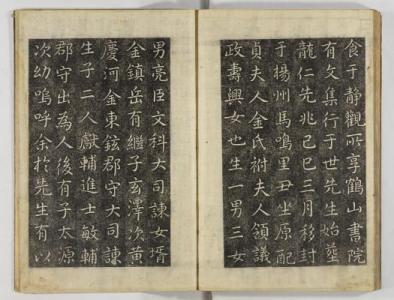 食于靜觀所享鶴山書院
有文集行于世先生始葬
龍仁先兆己巳三月移封
于揚州馬鳴里丑坐原配
貞夫人金氏祔夫人領議
政壽興女也生一男三女
男亮臣文科大司諫女壻
金鎮岳有繼子玄澤次黃
慶河金東鉉郡守大司諫
生子二人獻輔進士敏輔
郡守出為人後有子太源
次幼嗚呼余於先生有以